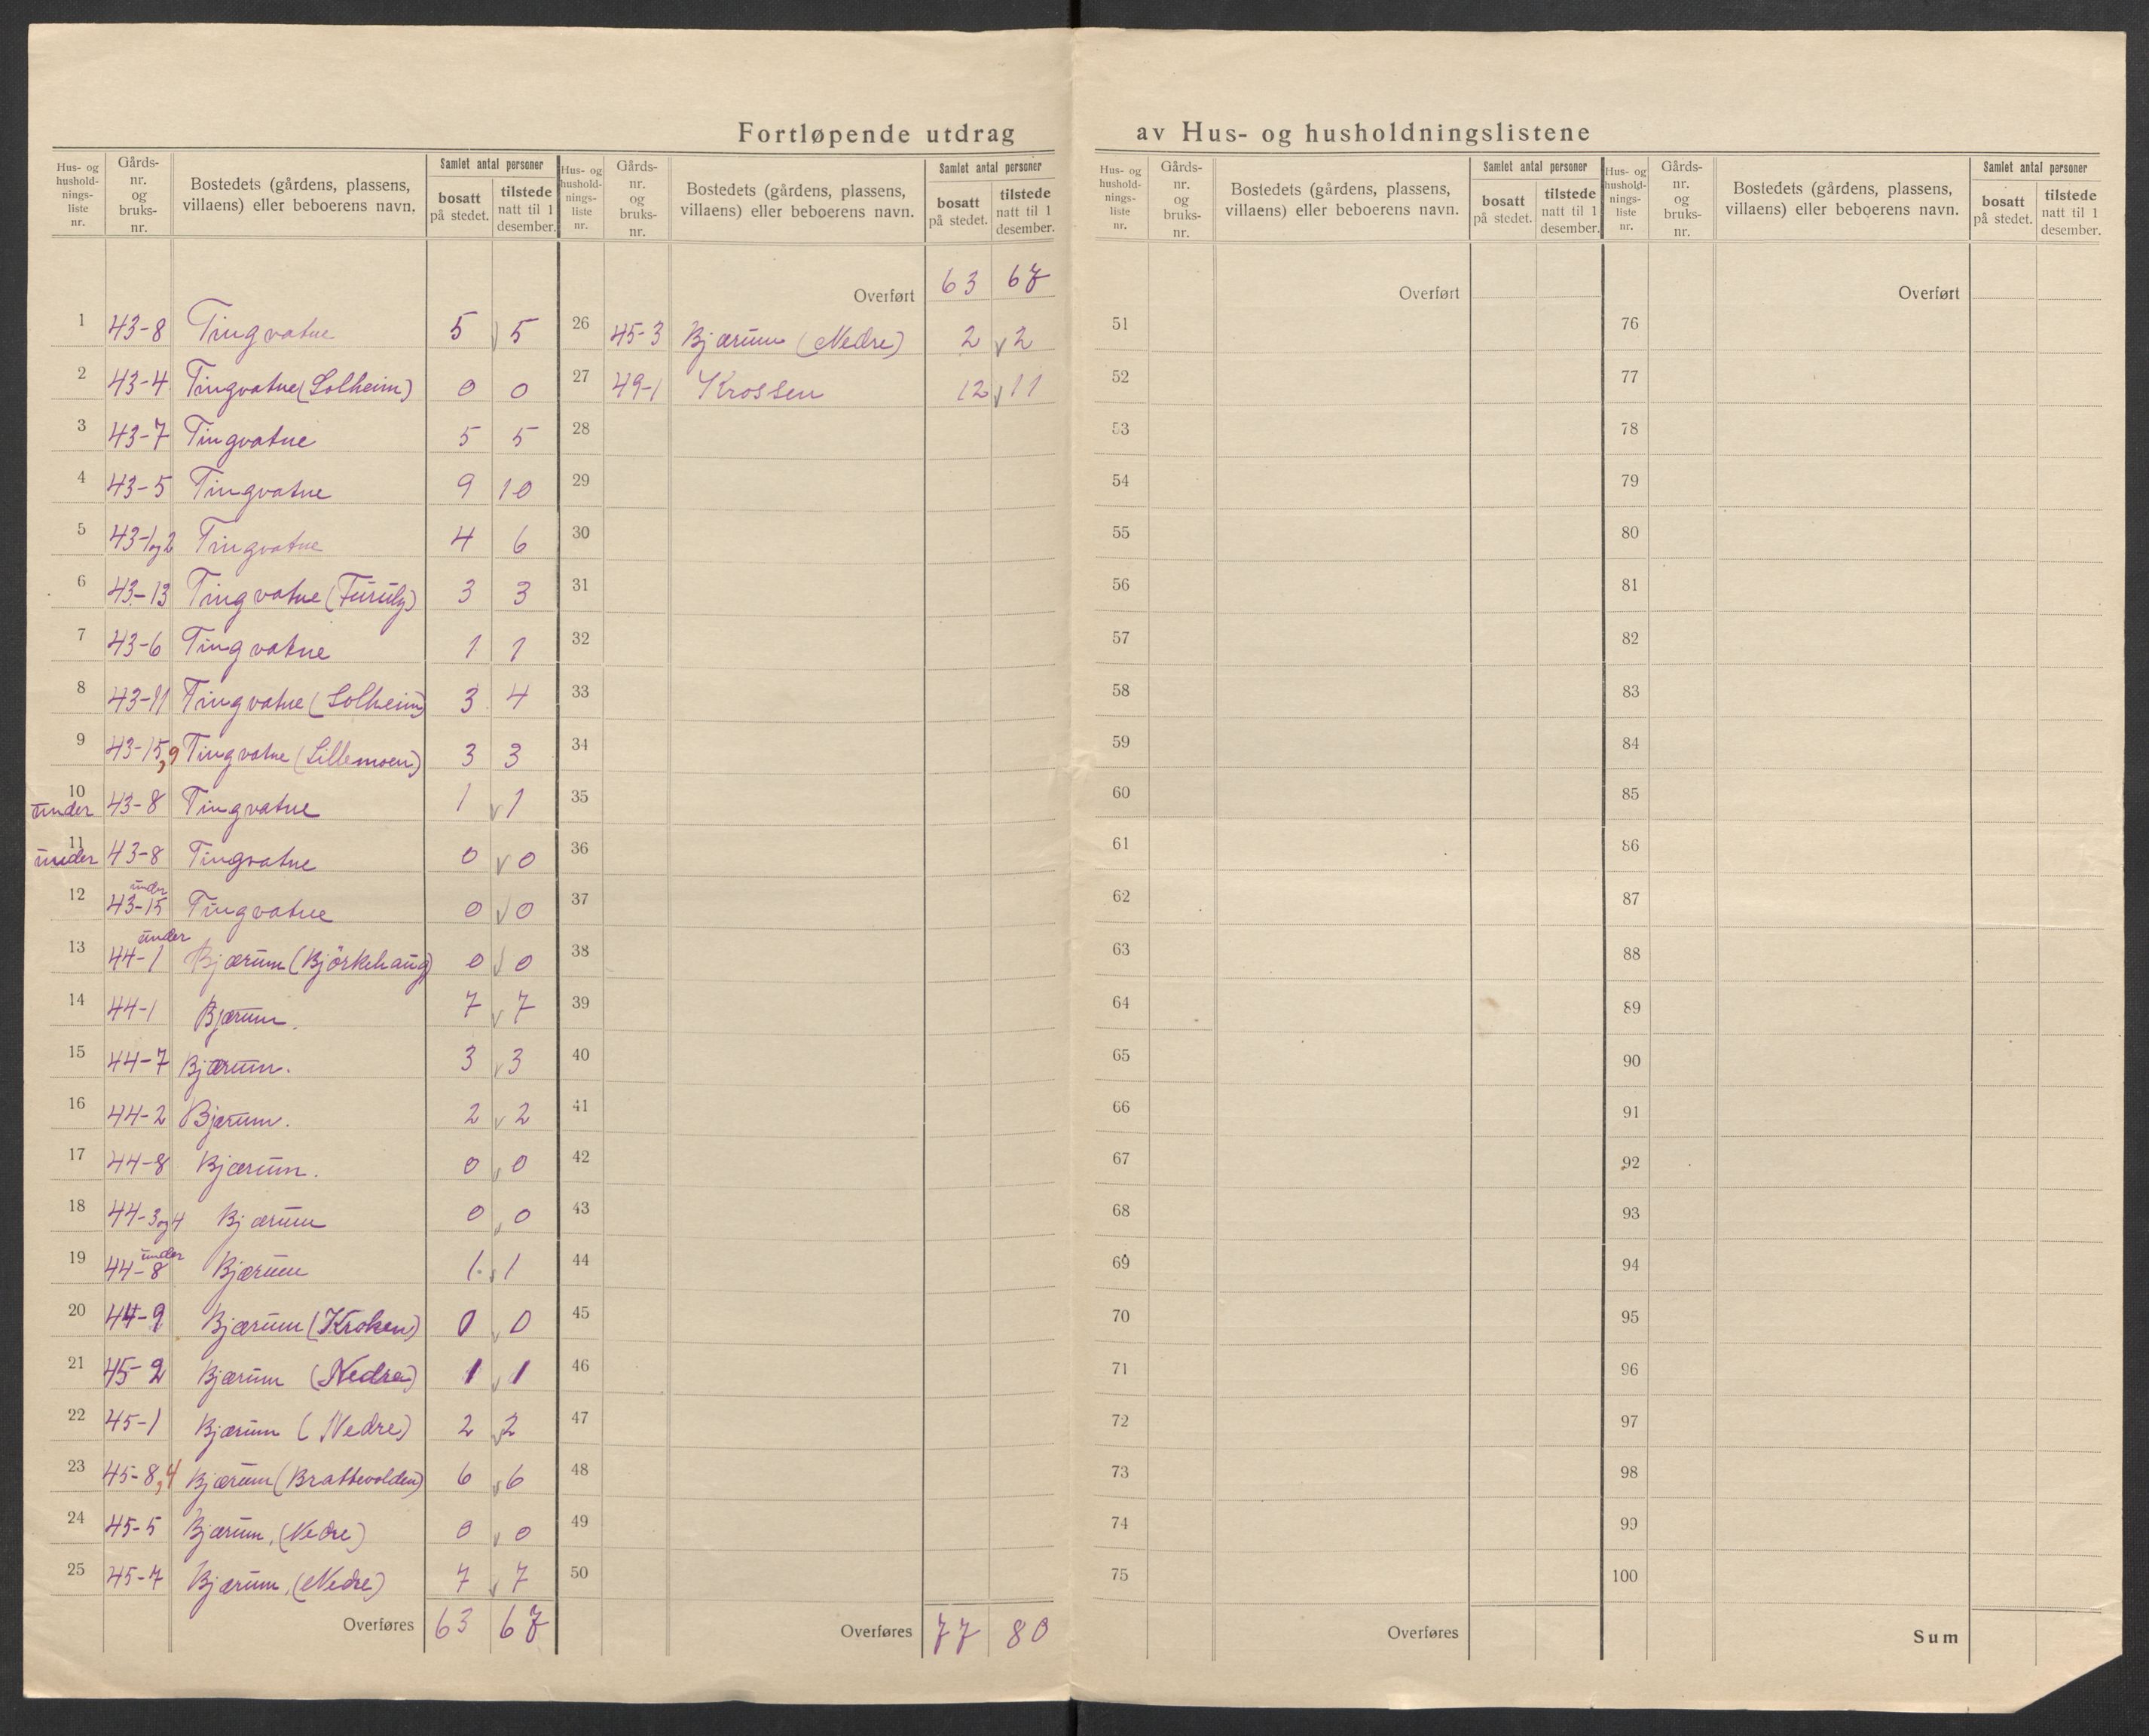 Fortløpende utdrag av Hus- og husholdningslistene
Hus- og hushold- nings- liste nr. | Gårds- nr. og bruks- nr. | Bostedets (gårdens, plassens, villaens) eller beboerens navn. | Samlet antal personer | bosatt på stedet. | tilstede natt til 1 desember.
1 43-8 Tingvatne 5 5
2 43-4 Tingvatne (Solheim) 0 0
3 43-7 Tingvatne 5 5
4 43-5 Tingvatne 9 10
5 43-1og2 Tingvatne 4 6
6 43-13 Tingvatne (Furuly) 3 3
7 43-6 Tingvatne 1 1
8 43-11 Tingvatne (Solheim) 3 4
9 43-15,9 Tingvatne (Lillemoen) 3 3
10 under 43-8 Tingvatne 1 v 1
11 under 43-8 Tingvatne 0 v 0
12 under 43-15 Tingvatne 0 v 0
13 under 44-1 Bjærum (Björkehaug) 0 v 0
14 44-1 Bjærum. 7 v 7
15 44-7 Bjærum. 3 v 3
16 44-2 Bjærum. 2 v 2
17 44-8 Bjærum. 0 v 0
18 44-3og4 Bjærum 0 v 0
19 under 44-8 Bjærum 1 v 1
20 44-9 Bjærum (Kroken) 0 v 0
21 45-2 Bjærum (Nedre) 1 v 1
22 45-1 Bjærum (Nedre) 2 v 2
23 45-8,4 Bjærum (Brattevolden) 6 v 6
24 45-5 Bjærum, (Nedre) 0 v 0
25 45-7 Bjærum, (Nedre) 7 v 7
Overføres 63 67
Hus- og hushold- nings- liste nr. | Gårds- nr. og bruks- nr. | Bostedets (gårdens, plassens, villaens) eller beboerens navn. | Samlet antal personer | bosatt på stedet. | tilstede natt til 1 desember.
Overført 63 67
26 45-3 Bjærum (Nedre) 2 v 2
27 49-1 Krossen 12 v 11
28
29
30
31
32
33
34
35
36
37
38
39
40
41
42
43
44
45
46
47
48
49
50
Overføres 77 80
Hus- og hushold- nings- liste nr. | Gårds- nr. og bruks- nr. | Bostedets (gårdens, plassens, villaens) eller beboerens navn. | Samlet antal personer | bosatt på stedet. | tilstede natt til 1 desember.
Overført
51
52
53
54
55
56
57
58
59
60
61
62
63
64
65
66
67
68
69
70
71
72
73
74
75
Overføres
Hus- og hushold- nings- liste nr. | Gårds- nr. og bruks- nr. | Bostedets (gårdens, plassens, villaens) eller beboerens navn. | Samlet antal personer | bosatt på stedet. | tilstede natt til 1 desember.
Overført
76
77
78
79
80
81
82
83
84
85
86
87
88
89
90
91
92
93
94
95
96
97
98
99
100
Sum